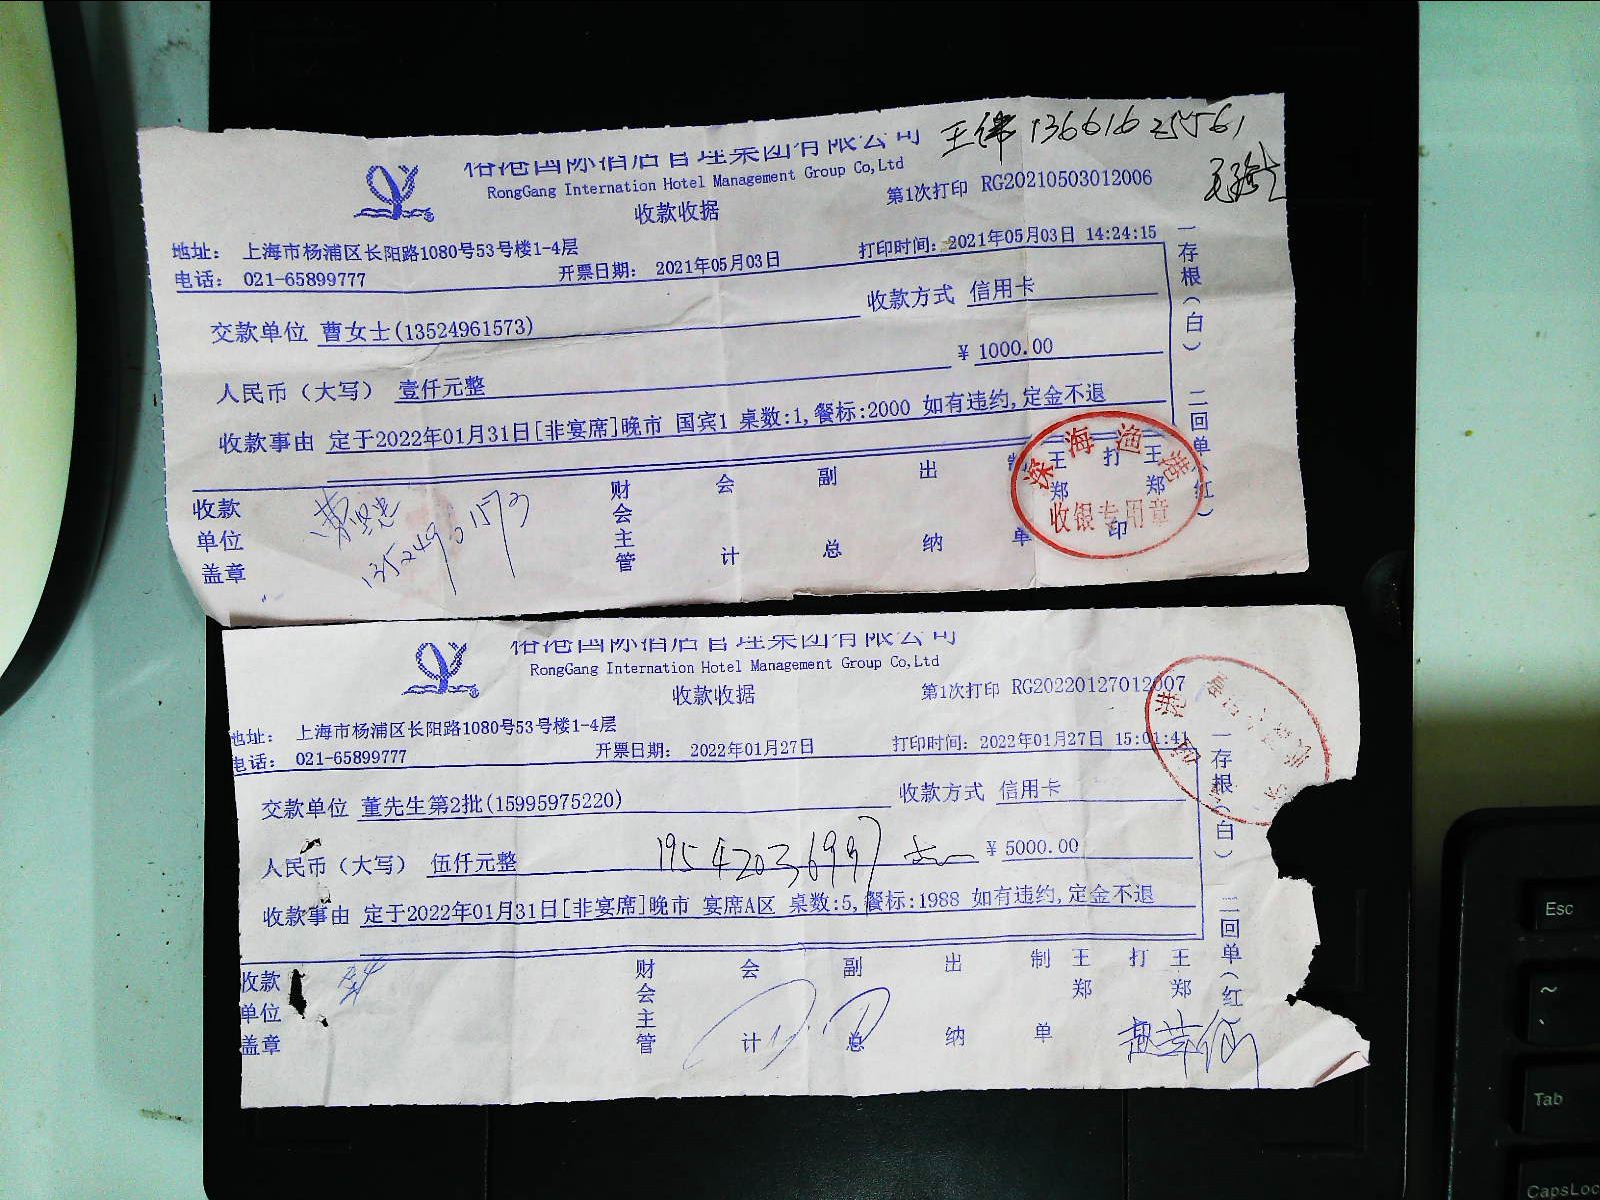 港国际酒店管理集团有限公司 王伟 13661625561
RongGang Internation Hotel Management Group Co,Ltd
收款收据
第1次打印 RG20210503012006
地址: 上海市杨浦区长阳路1080号53号楼1-4层
电话: 021-65899777
开票日期: 2021年05月03日
打印时间: 2021年05月03日 14:24:15
交款单位 曹女士(13524961573)
收款方式 信用卡
人民币(大写) 壹仟元整
¥ 1000.00
收款事由 定于2022年01月31日[非宴席]晚市 国宾1 桌数:1,餐标:2000 如有违约,定金不退
收款单位盖章
13524961573
财会主管
会计
副总
出纳
制单 王郑
打印 王郑
深海渔港
收银专用章
一存根(白) 二回单(红)
港国际酒店管理集团有限公司
RongGang Internation Hotel Management Group Co,Ltd
收款收据
第1次打印 RG20220127012007
地址: 上海市杨浦区长阳路1080号53号楼1-4层
电话: 021-65899777
开票日期: 2022年01月27日
打印时间: 2022年01月27日 15:01:41
交款单位 董先生第2批(15995975220)
收款方式 信用卡
人民币(大写) 伍仟元整
19542036997
¥ 5000.00
收款事由 定于2022年01月31日[非宴席]晚市 宴席A区 桌数:5,餐标:1988 如有违约,定金不退
收款单位盖章
财会主管
会计
副总
出纳
制单 王郑
打 王郑
一存根(白) 二回单(红
Esc
~
Tab
CapsLoc